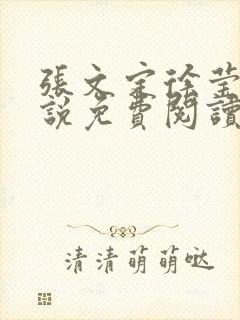 張文定徐莹
說免費閱讀
清清萌萌哒